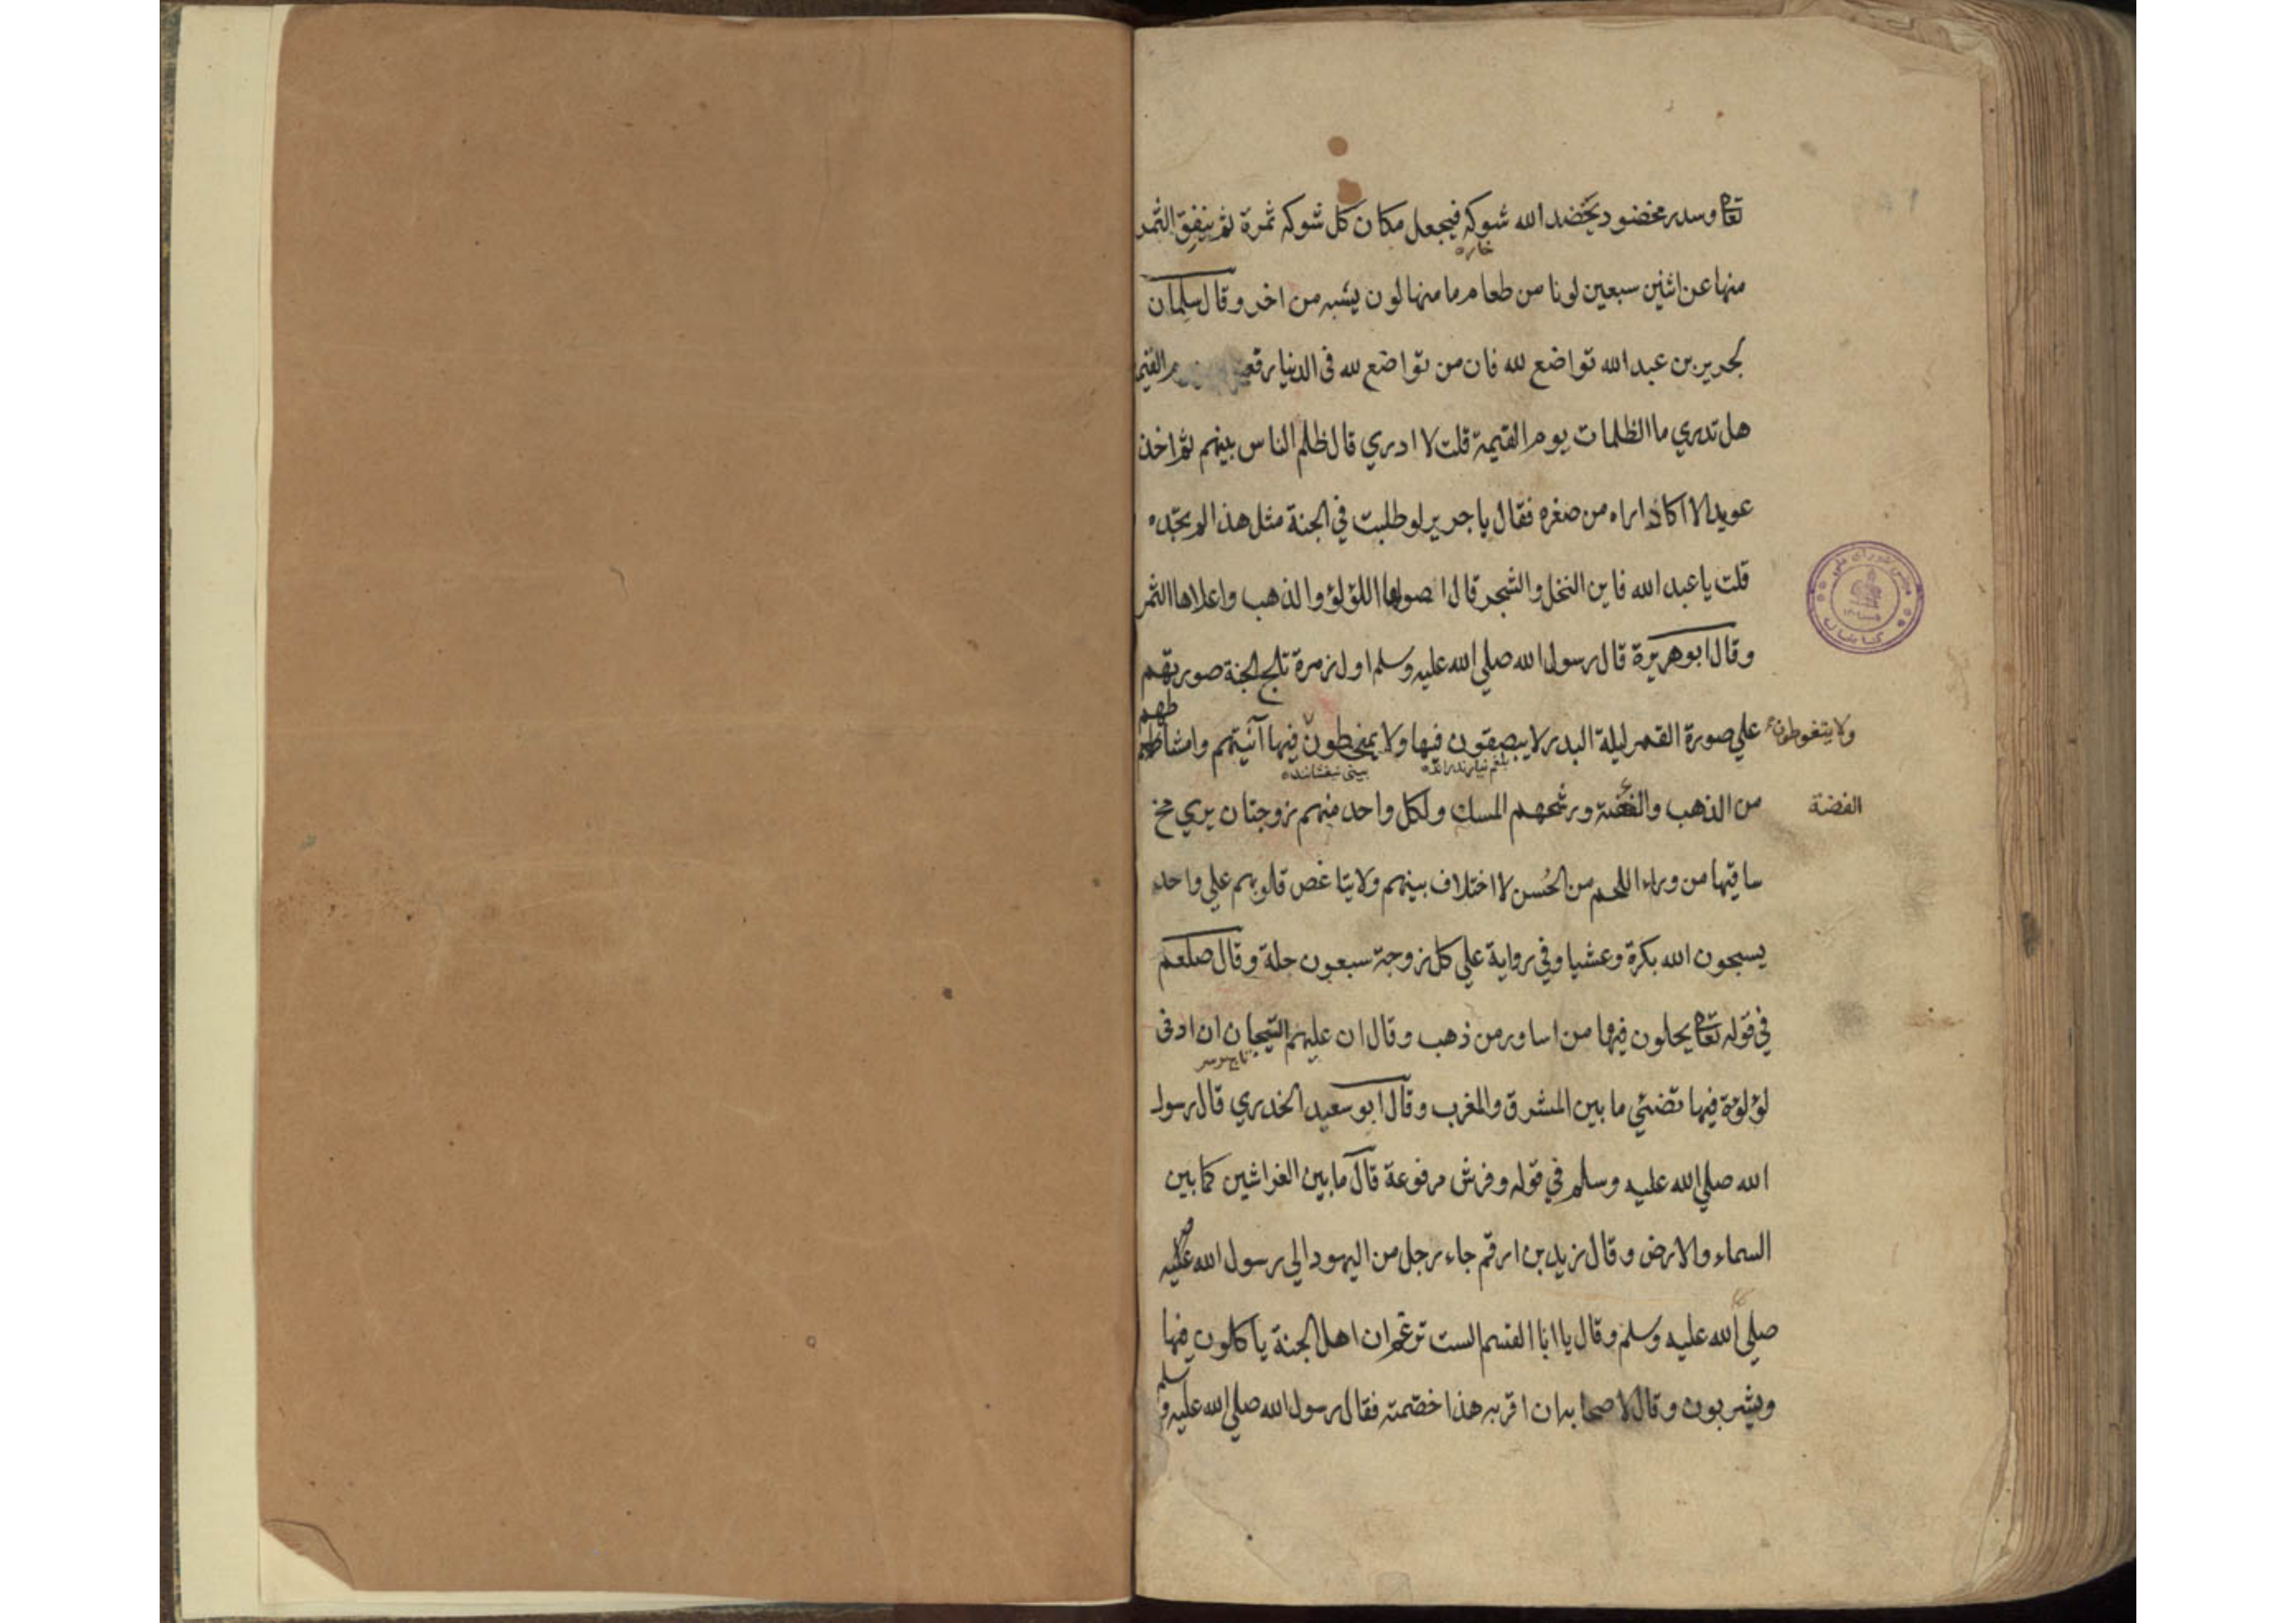 تعالى وسدر مخضود يخضد الله شوكه فيجعل مكان كل شوكه ثمرة ثم ينفق الثمر
خاره
منها عن اثنين سبعين لونا من طعام ما منها لون يشبه من اخر وقال سلمان
لجرير بن عبد الله تواضع لله فان من تواضع لله في الدنيا رفعه القيمة
هل تدري ما الظلمات يوم القيمة قلت لا ادري قال ظلم الناس بينهم ثم اخذ
عويدا لا اكاد اراه من صغره فقال يا جرير لو طلبت في الجنة مثل هذا لم تجده
قلت يا عبد الله فاين النخل والشجر قال اصولها اللؤلؤ والذهب واعلاها الثمر
وقال ابو هريرة قال رسول الله صلي الله عليه وسلم اول زمرة تلج الجنة صورتهم
علي صورة القمر ليلة البدر لا يبصقون فيها ولا يمتخطون فيها آنيتهم وامشاطهم
ولا يتغوطون
طهم
بيني نيفشانند
من الذهب والفضة ورشحهم المسك ولكل واحد منهم زوجتان يري مخ
الفضة
ساقيها من وراء اللحم من الحُسن لا اختلاف بينهم ولا يتاغض قلوبهم علي واحد
يسبحون الله بكرة وعشيا وفي رواية علي كل زوجة سبعون حلة وقال صلعم
في قوله تعالى يحلون فيها من اساور من ذهب وقال ان عليهم التيجان ان ادنى
لؤلؤة فيها تضئي ما بين المشرق والمغرب وقال ابو سعيد الخدري قال رسول
الله صلي الله عليه وسلم في قوله وفرش مرفوعة قال ما بين الفراشين كما بين
السماء والارض وقال زيد بن ارقم جاء رجل من اليهود الي رسول الله عليه
صلي الله عليه وسلم وقال يا ابا القسم الست تزعم ان اهل الجنة ياكلون فيها
ويشربون وقال لاصحابه ان اقر به هذا خصمته فقال رسول الله صلي الله عليه و
سلم